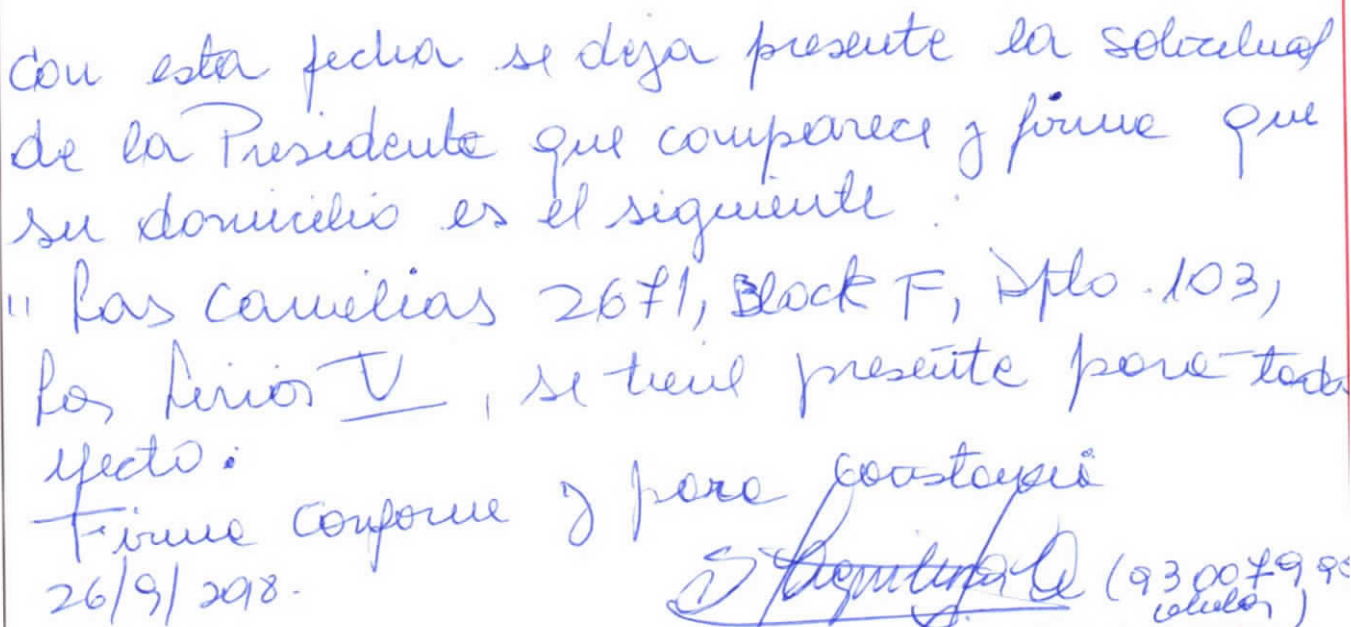 Con esta fecha se deja presente la solicitud
de la Presidente que comparece y firma que
su domicilio es el siguiente :
" Las Camelias 2671, Block F, Dpto. 103,
Los Lirios V, se tiene presente para todo
efecto.
Firma conforme y para constancia
26/9/2018.
(9300799
celular)